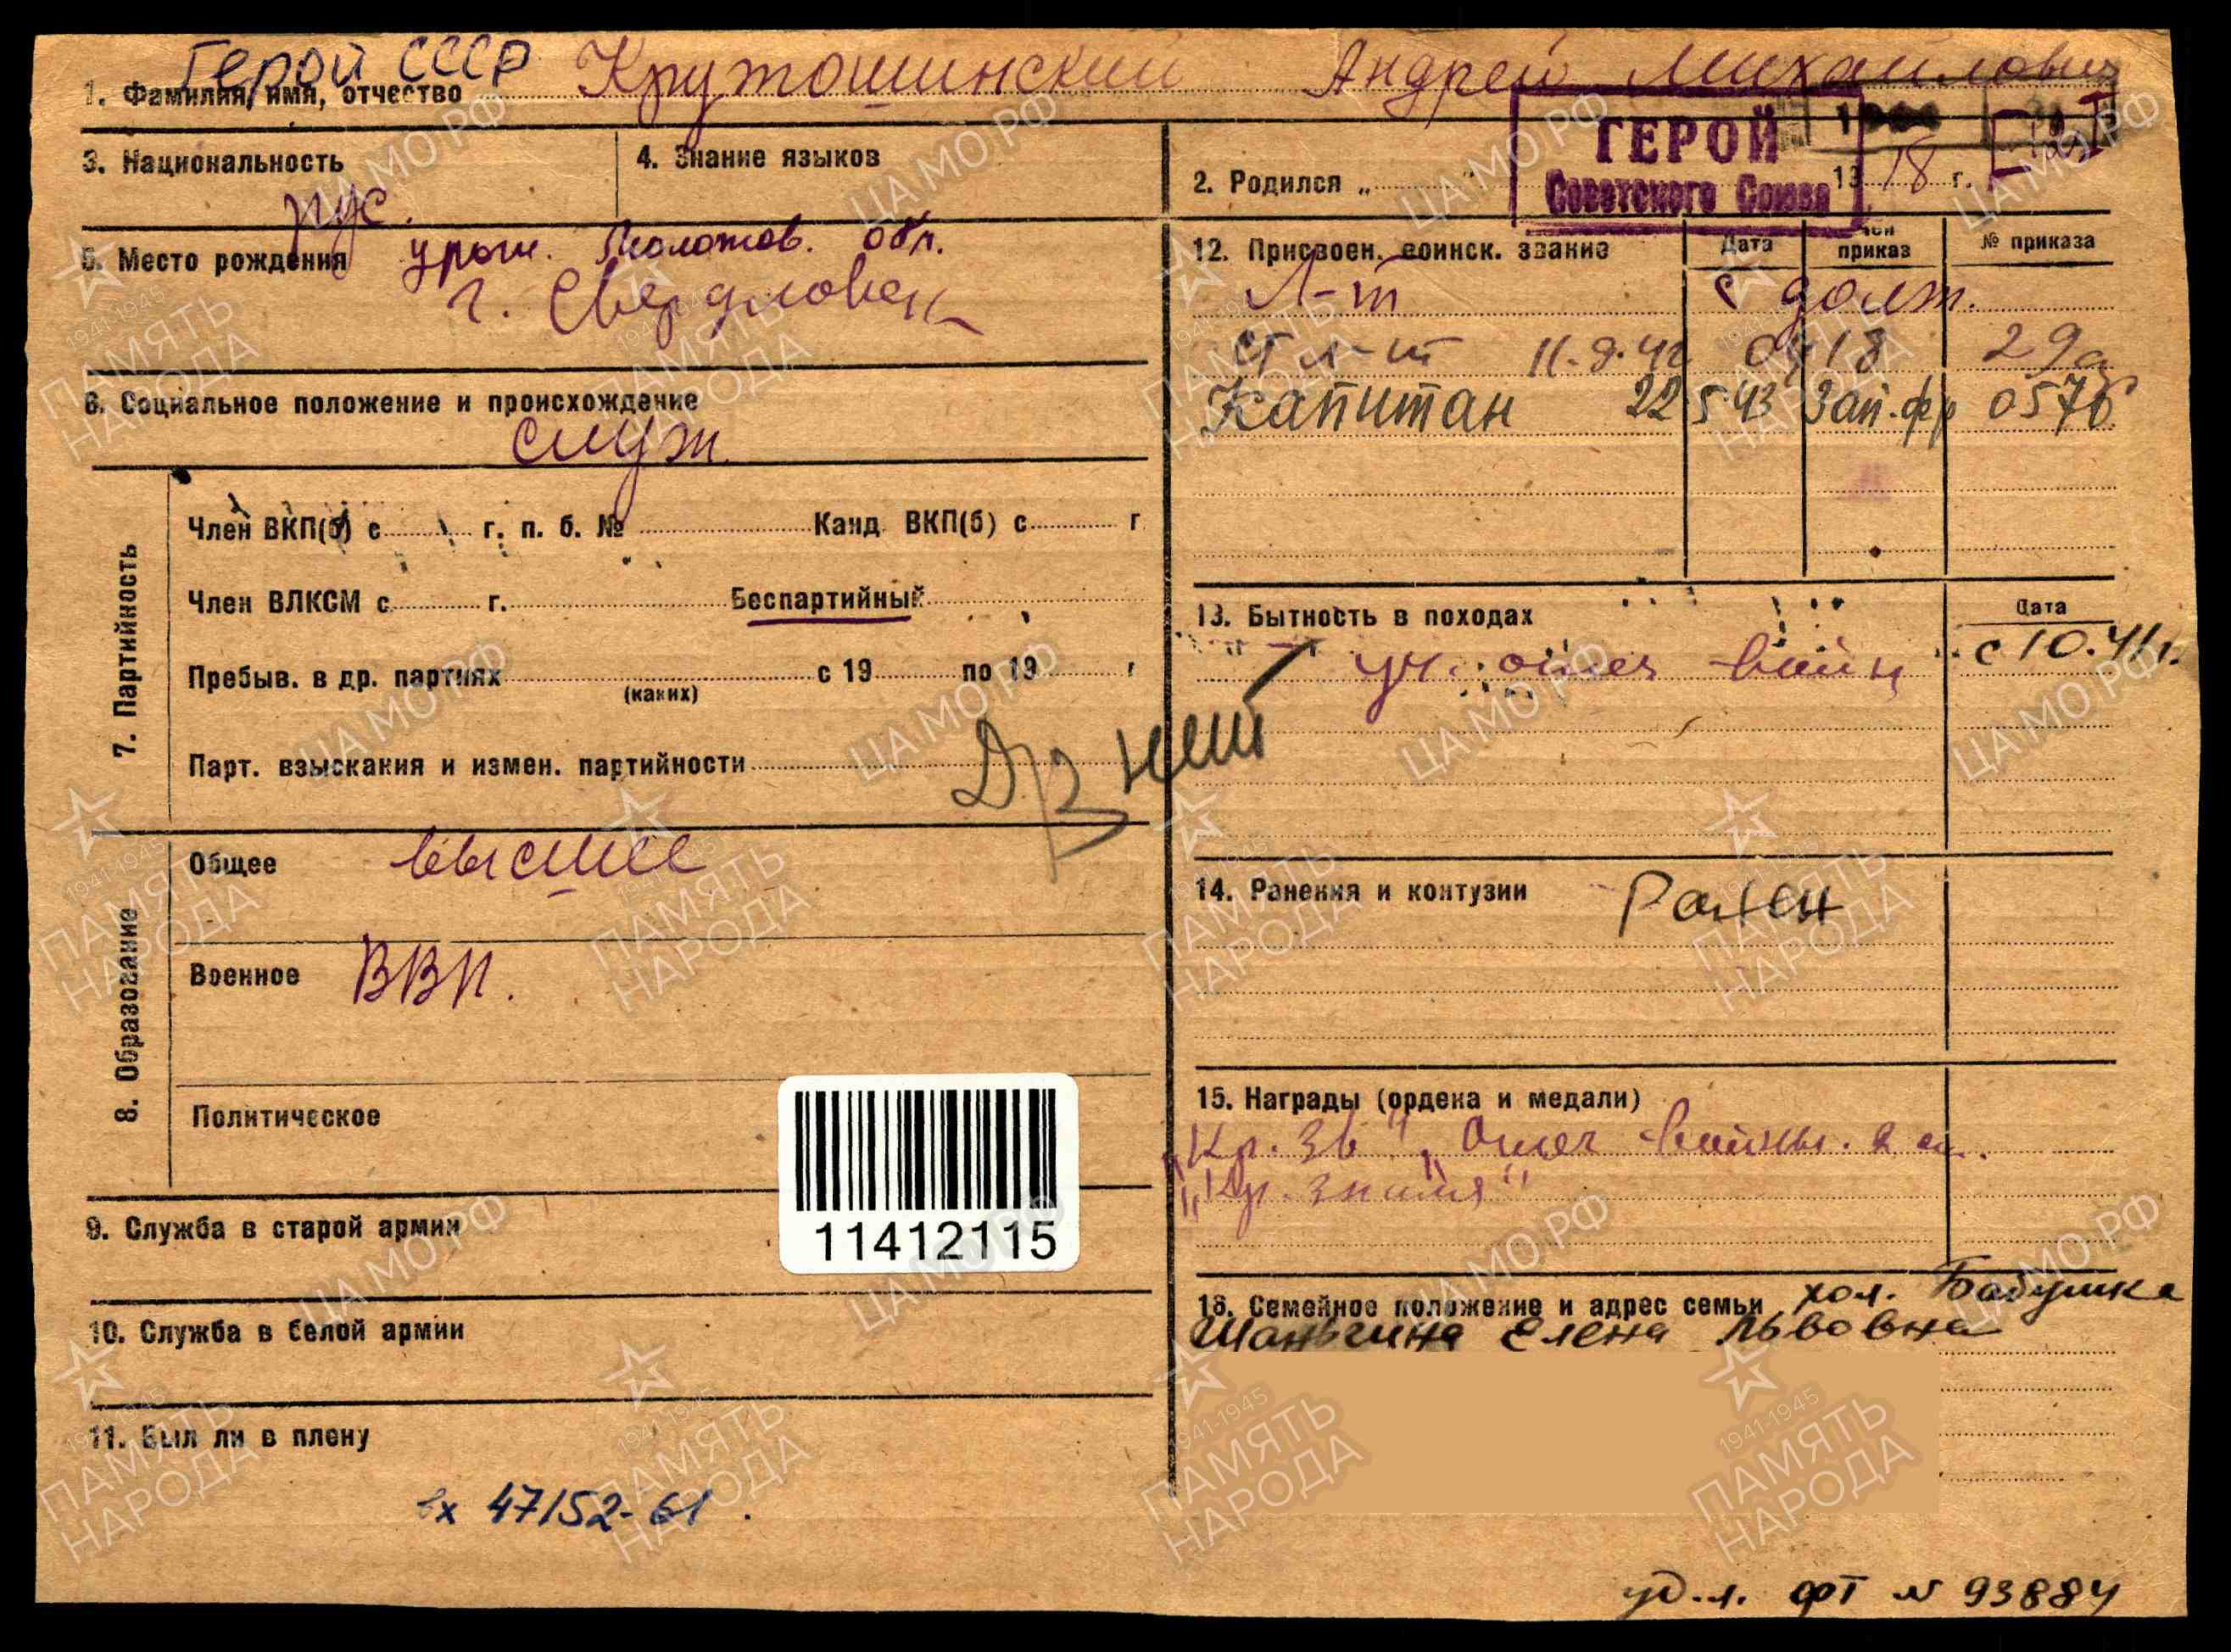 Герой СССР
1. Фамилия, имя, отчество Крутошинский Андрей Михайлович
3. Национальность рус.
4. Знание языков
2. Родился „ " 1918 г.
ГЕРОЙ
Советского Союза
5. Место рождения урож. Молотов. обл.
г. Свердловск
6. Социальное положение и происхождение
служ.
7. Партийность
Член ВКП(б) с г. п. б. № Канд. ВКП(б) с г.
Член ВЛКСМ с г. Беспартийный
Пребыв. в др. партиях с 19 по 19 г.
(каких)
Парт. взыскания и измен. партийности
нет
8. Образование
Общее высшее
Военное ВВП.
Политическое
11412115
9. Служба в старой армии
10. Служба в белой армии
11. Был ли в плену
вх 47152-61.
12. Присвоен. воинск. звание Дата Чей приказ № приказа
Л-т с долж.
Ст л-т
Капитан 22 5 43 Зап. фр 0576
13. Бытность в походах Дата
уч. отеч войны с 10.41г.
14. Ранения и контузии Ранен
15. Награды (ордена и медали)
„Кр. Зв", „Отеч войны. 2 ст.
„Кр. знамя"
16. Семейное положение и адрес семьи хол. Бабушка
Шаньгина Елена Львовна
уд.л. ФТ N 93884
ЦАМО РФ
1941-1945
ПАМЯТЬ
НАРОДА